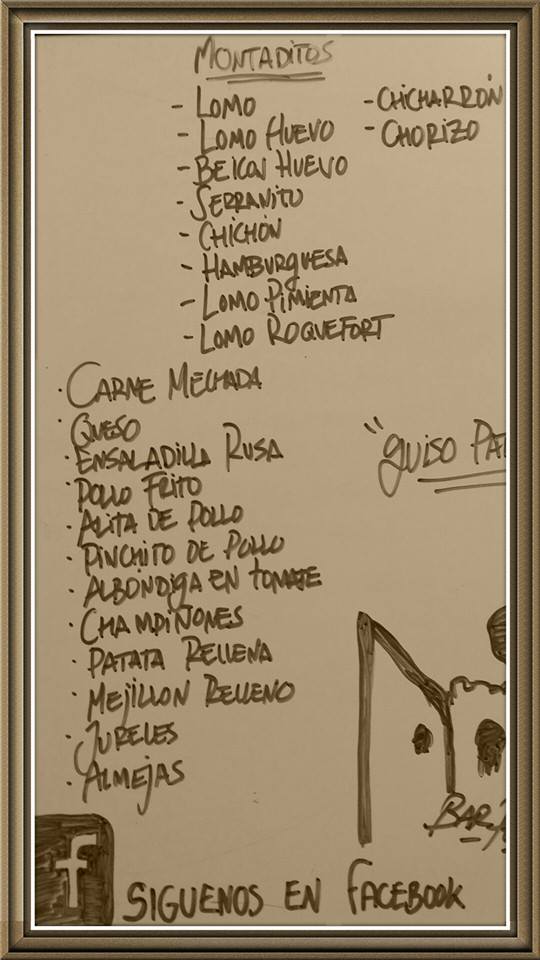 MONTADITOS
- LOMO
- LOMO HUEVO
- BEICON HUEVO
- SERRANITO
- CHICHÓN
- HAMBURGUESA
- LOMO PIMIENTA
- LOMO ROQUEFORT
- CHICHARRÓN
- CHORIZO
· CARNE MECHADA
· QUESO
· ENSALADILLA RUSA
· POLLO FRITO
· ALITA DE POLLO
· PINCHITO DE POLLO
· ALBONDIGA EN TOMATE
· CHAMPIÑONES
· PATATA RELLENA
· MEJILLON RELLENO
· JURELES
· ALMEJAS
"GUISO
BAR
f
SIGUENOS EN FACEBOOK